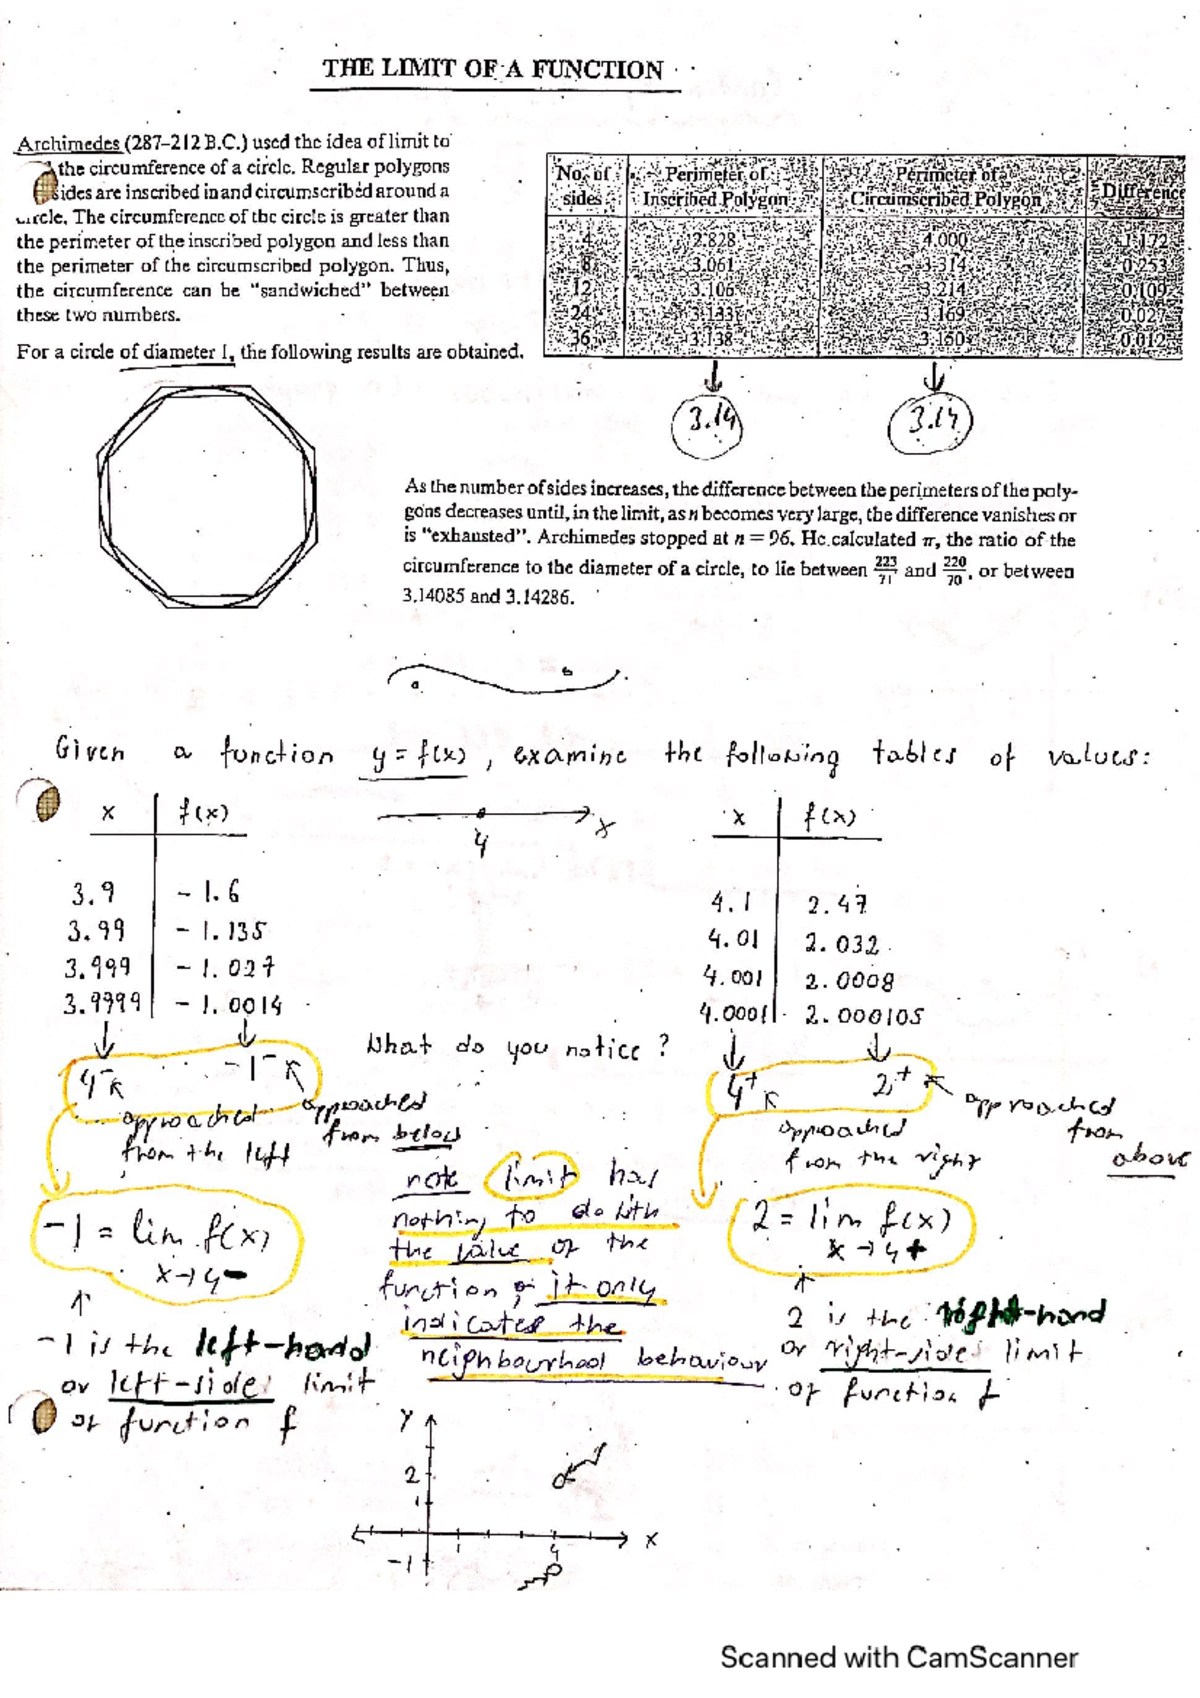 THE LIMIT OF A FUNCTION
Archimedes (287–212 B.C.) used the idea of limit to
the circumference of a circle. Regular polygons
sides are inscribed in and circumscribed around a
circle. The circumference of the circle is greater than
the perimeter of the inscribed polygon and less than
the perimeter of the circumscribed polygon. Thus,
the circumference can be "sandwiched" between
these two numbers.
For a circle of diameter 1, the following results are obtained.
No. of sides Perimeter of Inscribed Polygon Perimeter of Circumscribed Polygon Difference
4 2.828 4.000 1.172
8 3.061 3.314 0.253
12 3.106 3.214 0.109
24 3.133 3.169 0.027
36 3.138 3.150 0.012
3.14 3.14
As the number of sides increases, the difference between the perimeters of the poly-
gons decreases until, in the limit, as n becomes very large, the difference vanishes or
is "exhausted". Archimedes stopped at n = 96. He calculated π, the ratio of the
circumference to the diameter of a circle, to lie between 223/71 and 220/70, or between
3.14085 and 3.14286.
a b
Given a function y = f(x), examine the following tables of values:
x f(x)
3.9 -1.6
3.99 -1.135
3.999 -1.027
3.9999 -1.0014
4⁻ -1⁻
approached from the left
approached from below
-1 = lim f(x)
x→4-
-1 is the left-hand
or left-sided limit
of function f
4 x
What do you notice?
note limit has
nothing to do with
the value of the
function; it only
indicates the
neighbourhood behaviour
x f(x)
4.1 2.47
4.01 2.032
4.001 2.0008
4.0001 2.000105
4⁺ 2⁺
approached from the right
approached from above
2 = lim f(x)
x→4+
2 is the right-hand
or right-sided limit
of function f
y
2
1
1 4 x
-1
Scanned with CamScanner